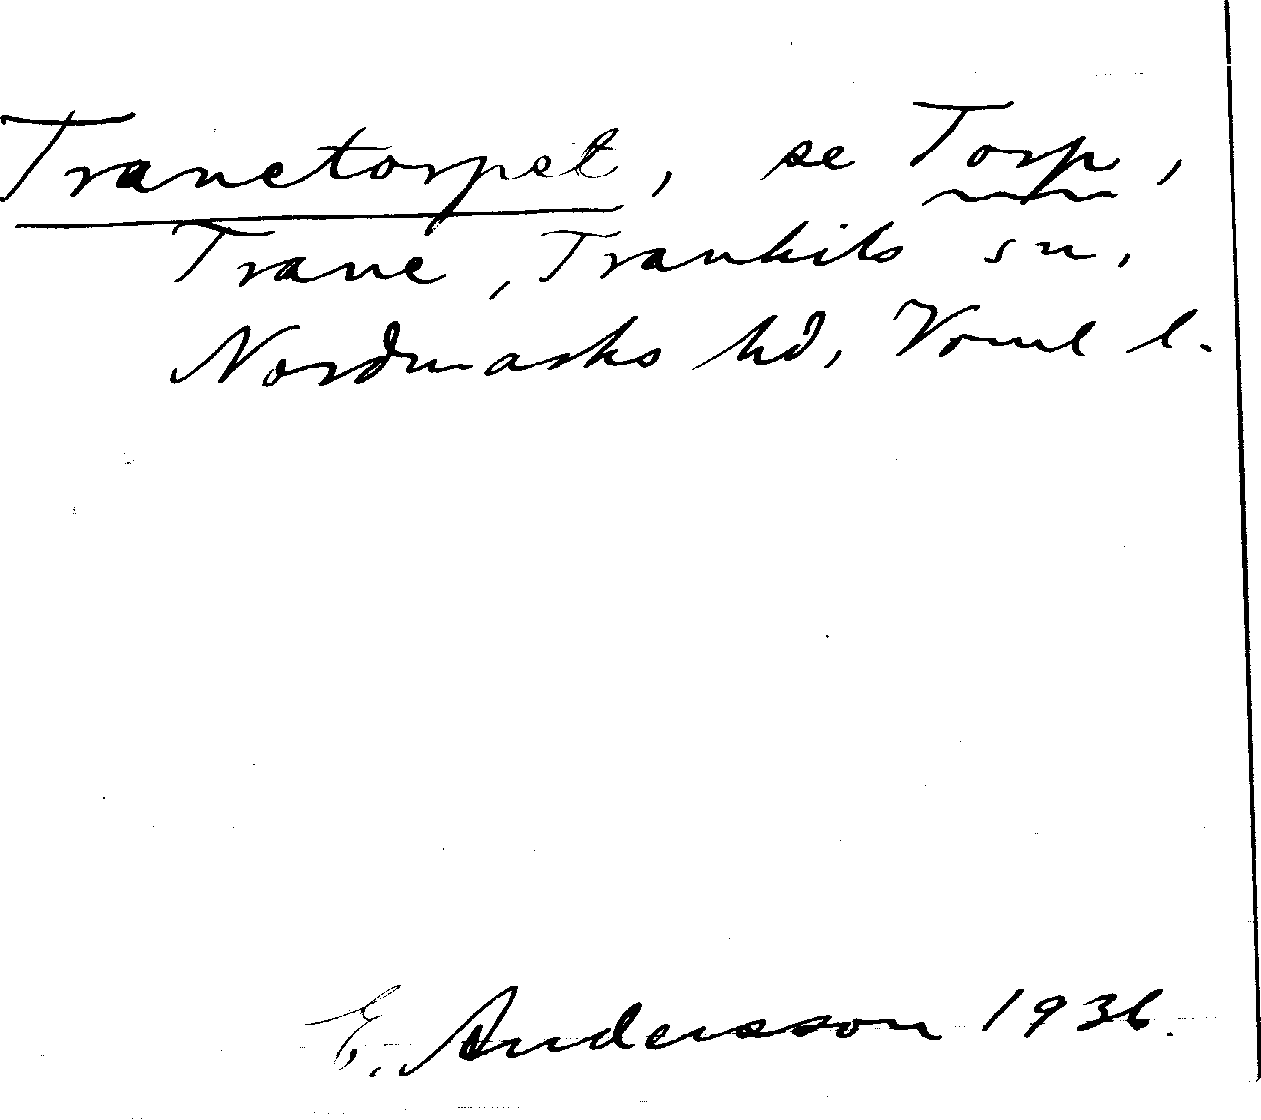 Tranetorpet, se Torp,
Trane, Trankils sn,
Nordmarks hd, Värml l.
E. Andersson 1936.